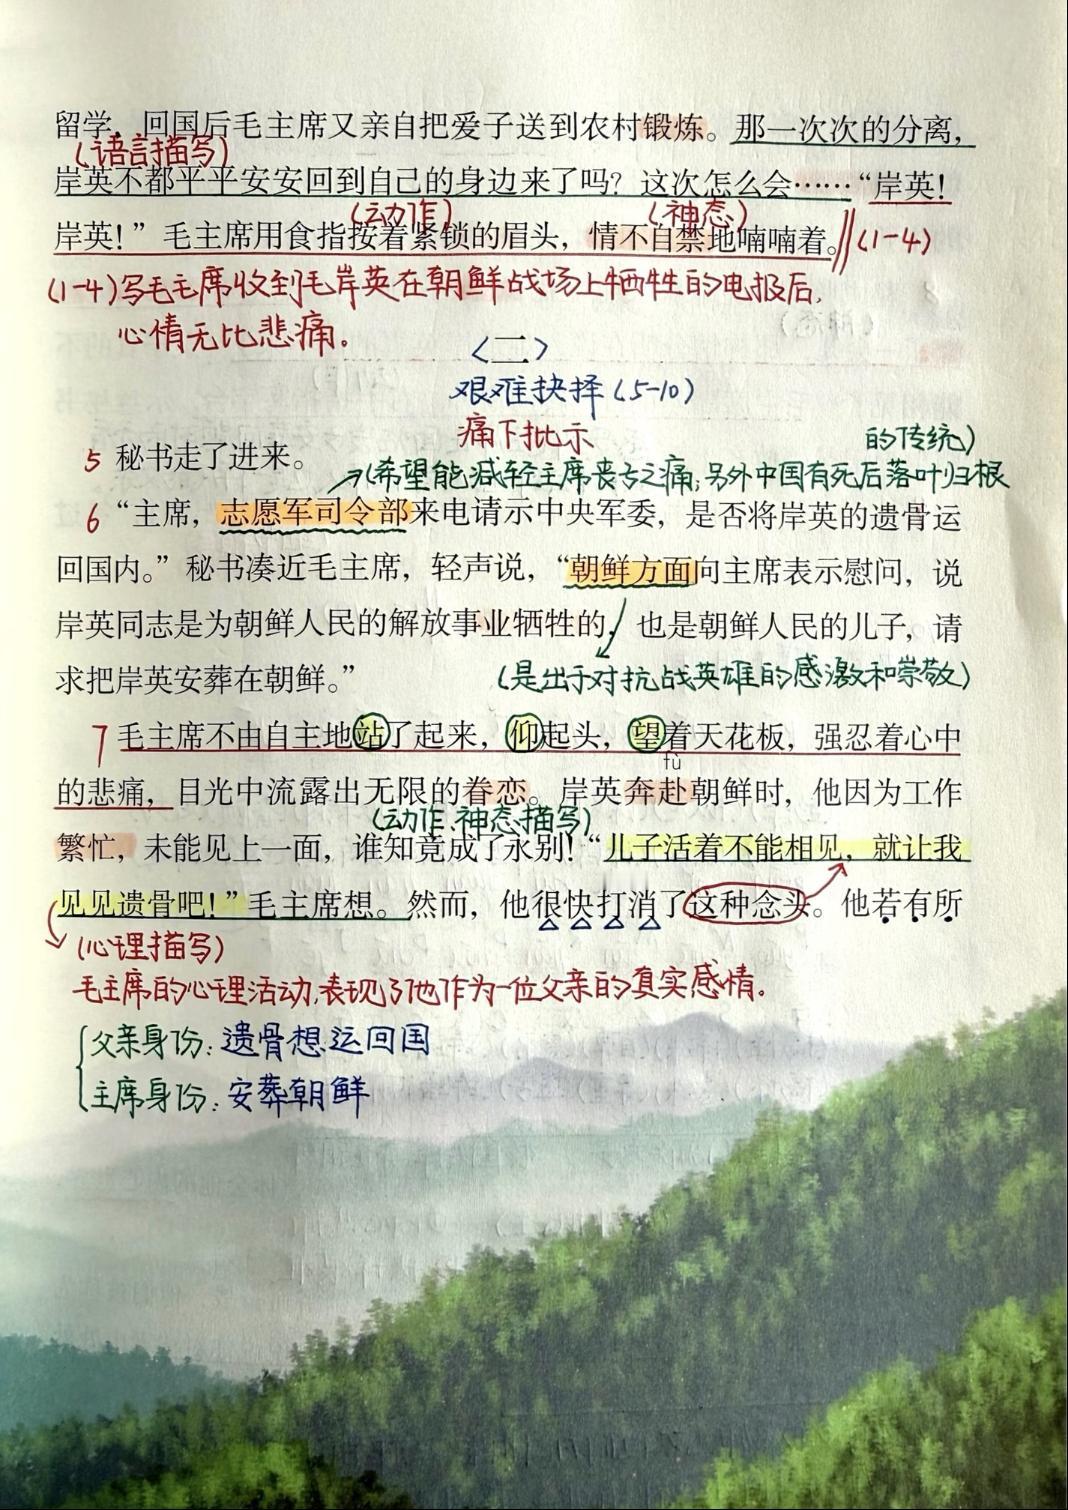 留学，回国后毛主席又亲自把爱子送到农村锻炼。那一次次的分离，
(语言描写)
岸英不都平平安安回到自己的身边来了吗？这次怎么会……“岸英！
(动作) (神态)
岸英！”毛主席用食指按着紧锁的眉头，情不自禁地喃喃着。(1-4)
(1-4)写毛主席收到毛岸英在朝鲜战场上牺牲的电报后，
心情无比悲痛。
<二>
艰难抉择(5-10)
痛下批示
5 秘书走了进来。
(希望能减轻主席丧子之痛；另外中国有死后落叶归根
的传统)
6 “主席，志愿军司令部来电请示中央军委，是否将岸英的遗骨运
回国内。”秘书凑近毛主席，轻声说，“朝鲜方面向主席表示慰问，说
岸英同志是为朝鲜人民的解放事业牺牲的，也是朝鲜人民的儿子，请
求把岸英安葬在朝鲜。”
(是出于对抗战英雄的感激和崇敬)
7 毛主席不由自主地站了起来，仰起头，望着天花板，强忍着心中
fù
的悲痛，目光中流露出无限的眷恋。岸英奔赴朝鲜时，他因为工作
(动作、神态描写)
繁忙，未能见上一面，谁知竟成了永别！“儿子活着不能相见，就让我
见见遗骨吧！”毛主席想。然而，他很快打消了这种念头。他若有所
(心理描写)
毛主席的心理活动，表现了他作为一位父亲的真实感情。
父亲身份：遗骨想运回国
主席身份：安葬朝鲜